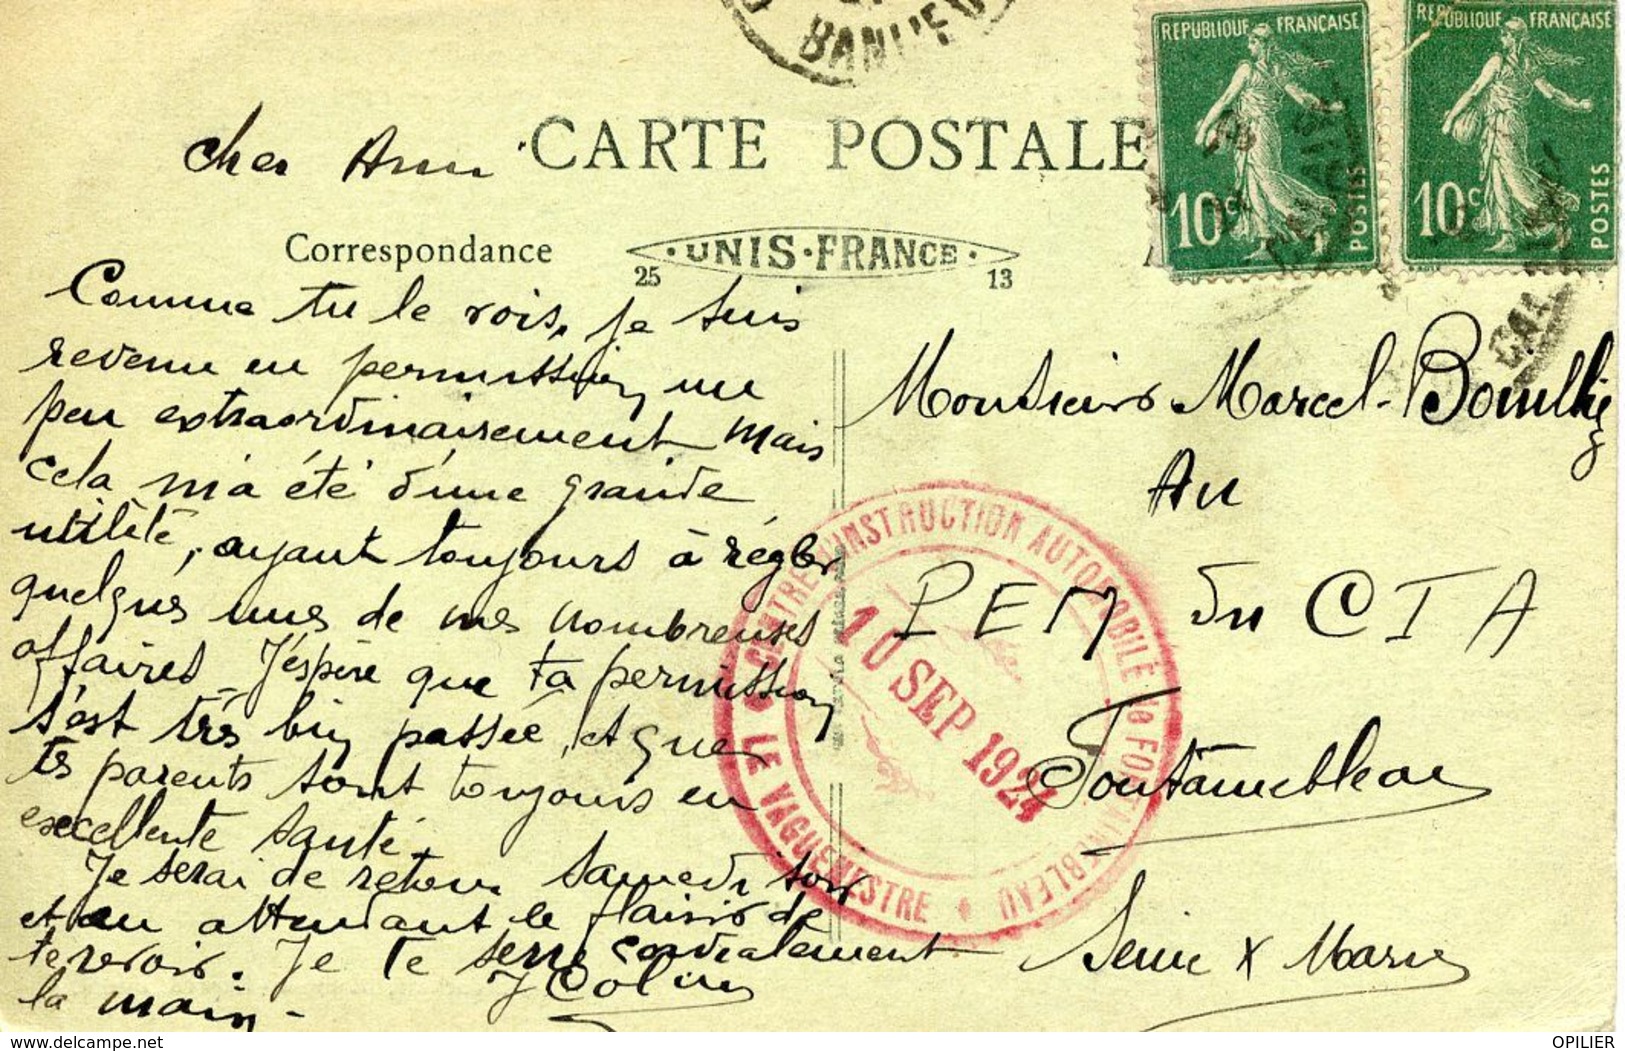 BANLIEUE
REPUBLIQUE FRANÇAISE
10c
POSTES
REPUBLIQUE FRANÇAISE
10c
POSTES
CARTE POSTALE
Cher Ami
Correspondance
UNIS·FRANCE
25 13
Comme tu le vois, je suis
revenu en permission, un
peu extraordinairement mais
cela m'a été d'une grande
utilité, ayant toujours à régler
quelques unes de mes nombreuses
affaires J'espère que ta permission
s'est très bien passée, et que
ts parents sont toujours en
excellente santé.
Je serai de retour samedi soir
et au attendant le plaisir de
te revoir. Je te serre cordialement
la main -
J Colin
Monsieur Marcel
Au
PEM du CTA
Fontainebleau
Seine & Marne
CENTRE D'INSTRUCTION AUTOMOBILE de FONTAINEBLEAU
LE VAGUEMESTRE
10 SEP 1924
delcampe.net
OPILIER